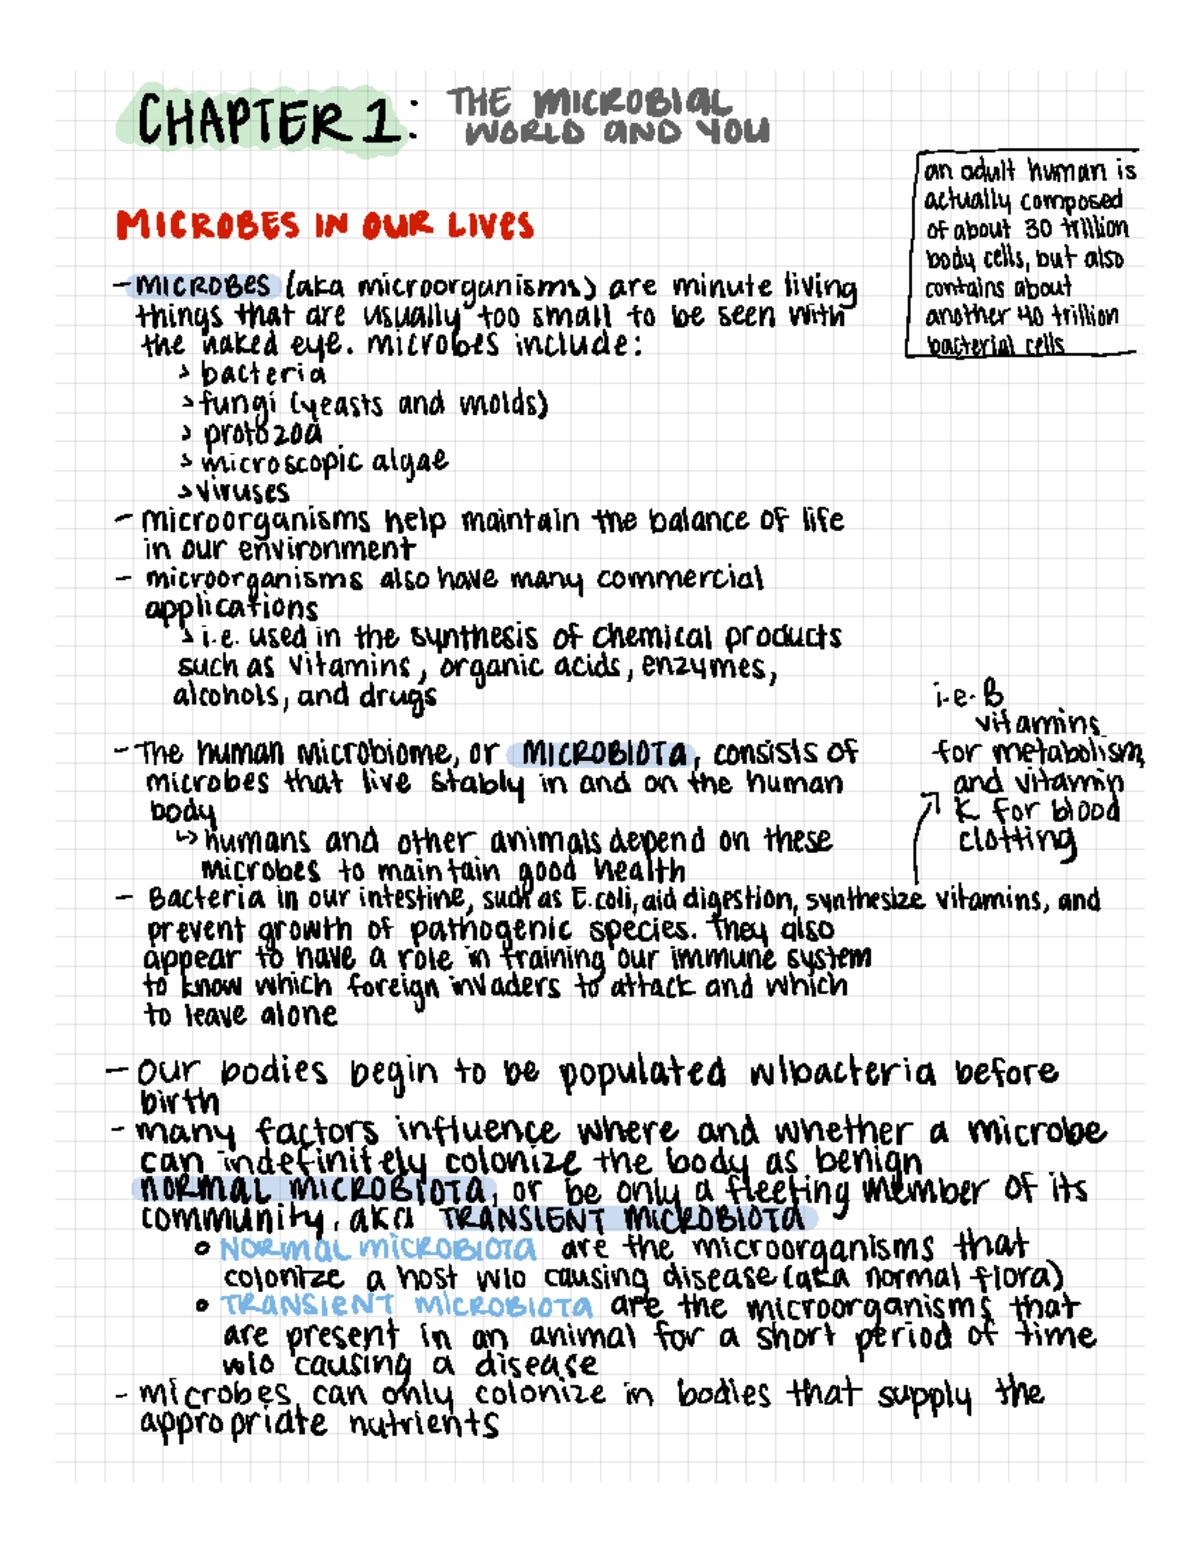 CHAPTER 1: THE MICROBIAL
WORLD AND YOU
an adult human is
actually composed
of about 30 trillion
body cells, but also
contains about
another 40 trillion
bacterial cells
MICROBES IN OUR LIVES
- MICROBES (aka microorganisms) are minute living
things that are usually too small to be seen with
the naked eye. microbes include:
> bacteria
> fungi (yeasts and molds)
> protozoa
> microscopic algae
> viruses
- microorganisms help maintain the balance of life
in our environment
- microorganisms also have many commercial
applications
> i.e. used in the synthesis of chemical products
such as vitamins, organic acids, enzymes,
alcohols, and drugs
- The human microbiome, or MICROBIOTA, consists of
microbes that live stably in and on the human
body
↳ humans and other animals depend on these
microbes to maintain good health
i.e. B
vitamins
for metabolism,
and vitamin
K for blood
clotting
- Bacteria in our intestine, such as E.coli, aid digestion, synthesize vitamins, and
prevent growth of pathogenic species. They also
appear to have a role in training our immune system
to know which foreign invaders to attack and which
to leave alone
- our bodies begin to be populated w/bacteria before
birth
- many factors influence where and whether a microbe
can indefinitely colonize the body as benign
NORMAL MICROBIOTA, or be only a fleeting member of its
community, aka TRANSIENT MICROBIOTA
• NORMAL MICROBIOTA are the microorganisms that
colonize a host w/o causing disease (aka normal flora)
• TRANSIENT MICROBIOTA are the microorganisms that
are present in an animal for a short period of time
w/o causing a disease
- microbes can only colonize in bodies that supply the
appropriate nutrients